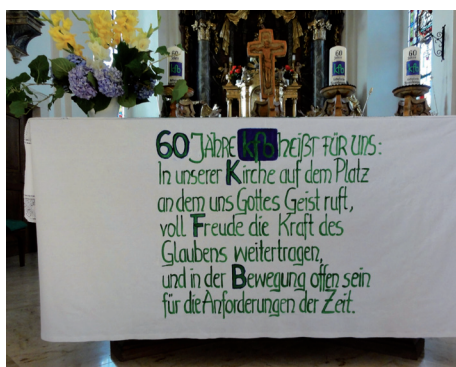 60 JAHRE kfb heißt FÜR UNS:
In unserer Kirche auf dem Platz
an dem uns Gottes Geist ruft,
voll Freude die Kraft des
Glaubens weitertragen,
und in der Bewegung offen sein
für die Anforderungen der Zeit.